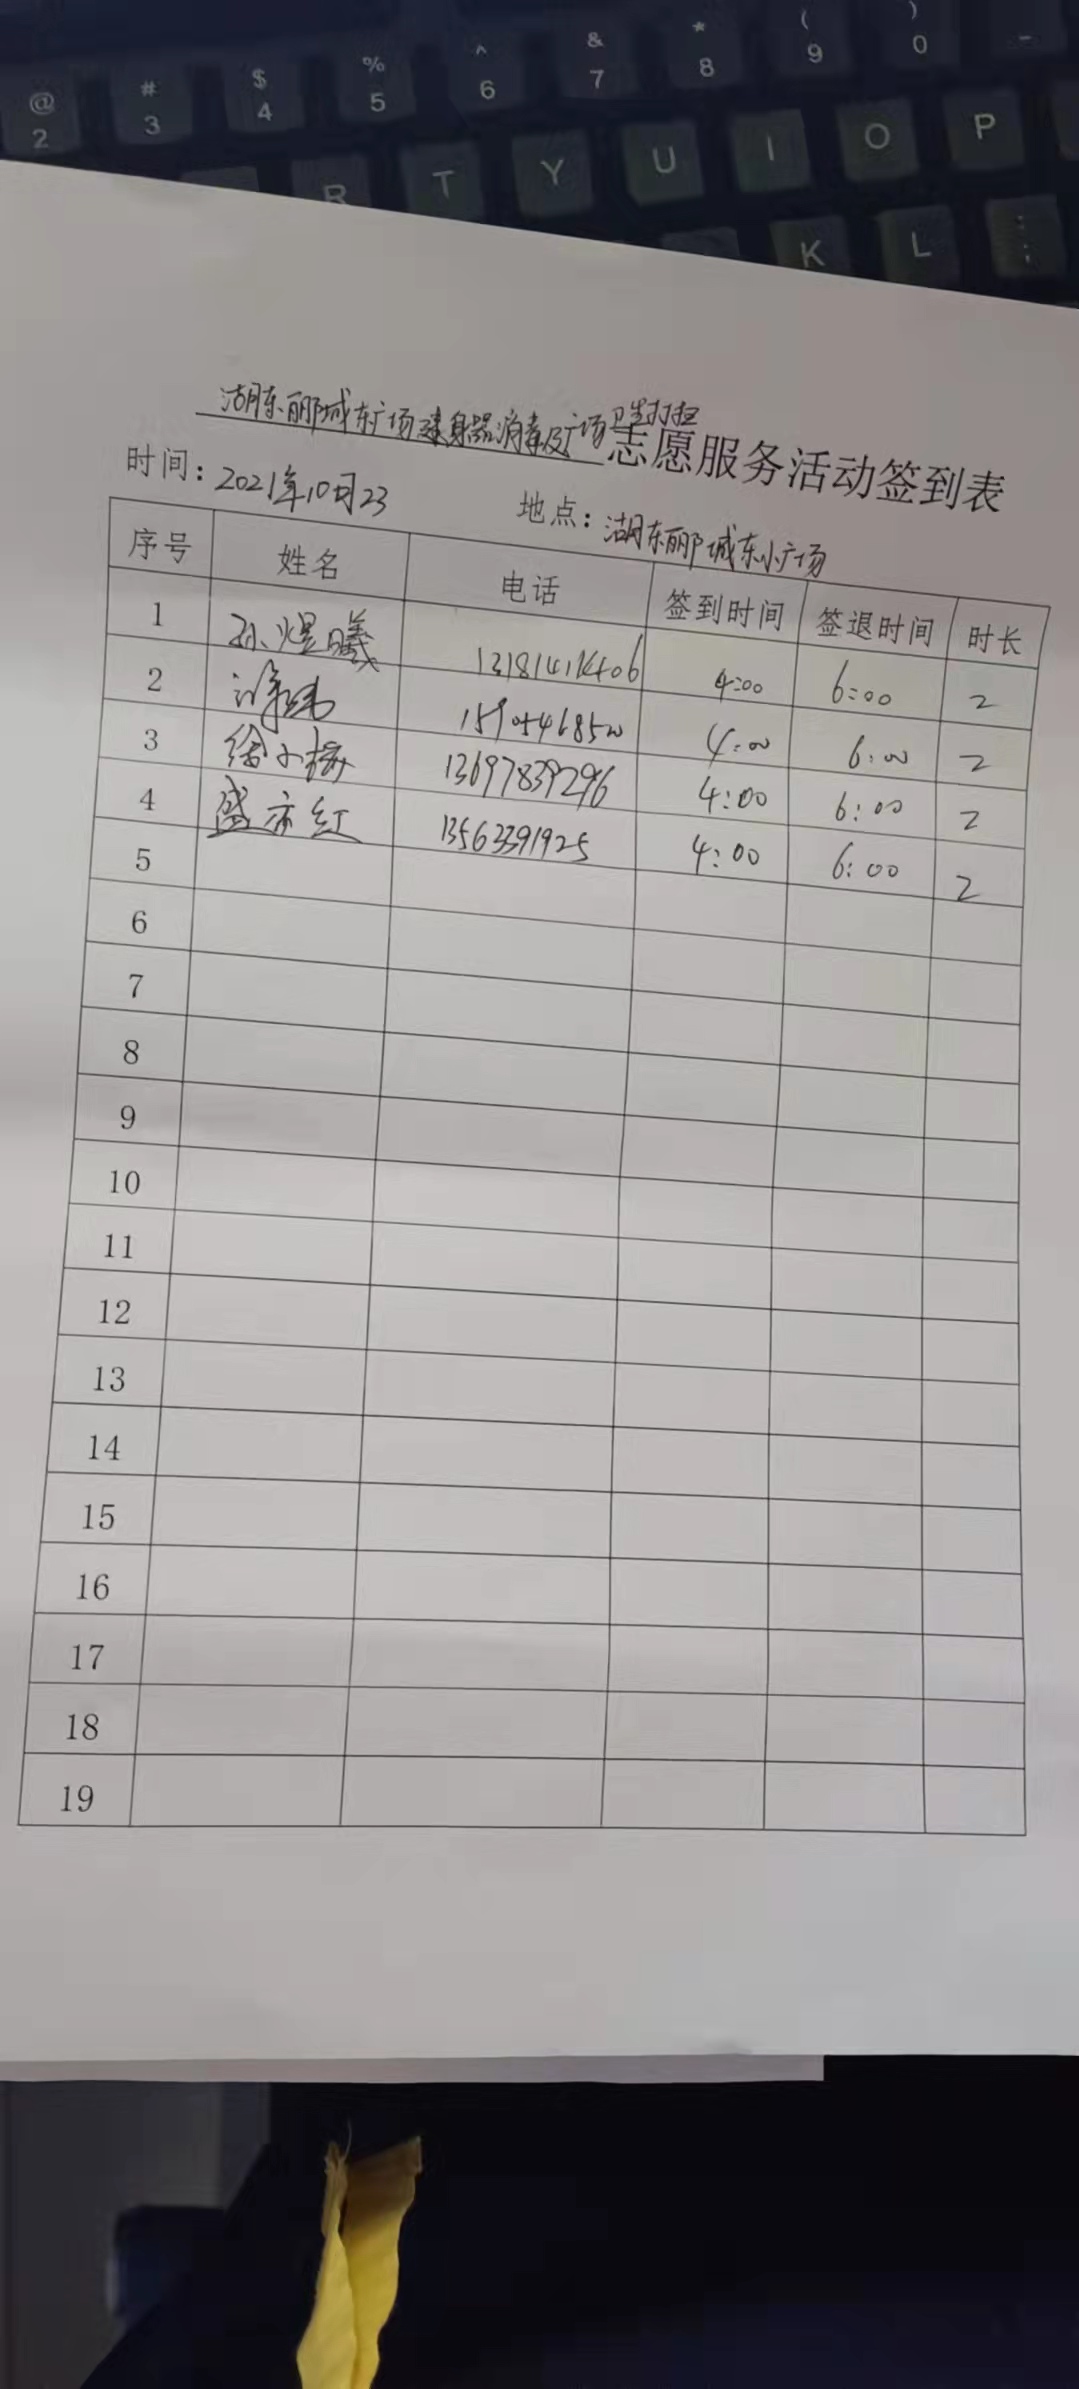 @ # $ % ^ & * ( ) -
2 3 4 5 6 7 8 9 0
R T Y U I O P
K L : ;
湖东郦城东广场健身器消毒及广场卫生打扫志愿服务活动签到表
时间：2021年10月23 地点：湖东郦城东小广场
序号 姓名 电话 签到时间 签退时间 时长
1 孙煜曦 4:00 6:00 2
2 许 4:00 6:00 2
3 徐小梅 13697839296 4:00 6:00 2
4 盛亦红 13563391925 4:00 6:00 2
5
6
7
8
9
10
11
12
13
14
15
16
17
18
19